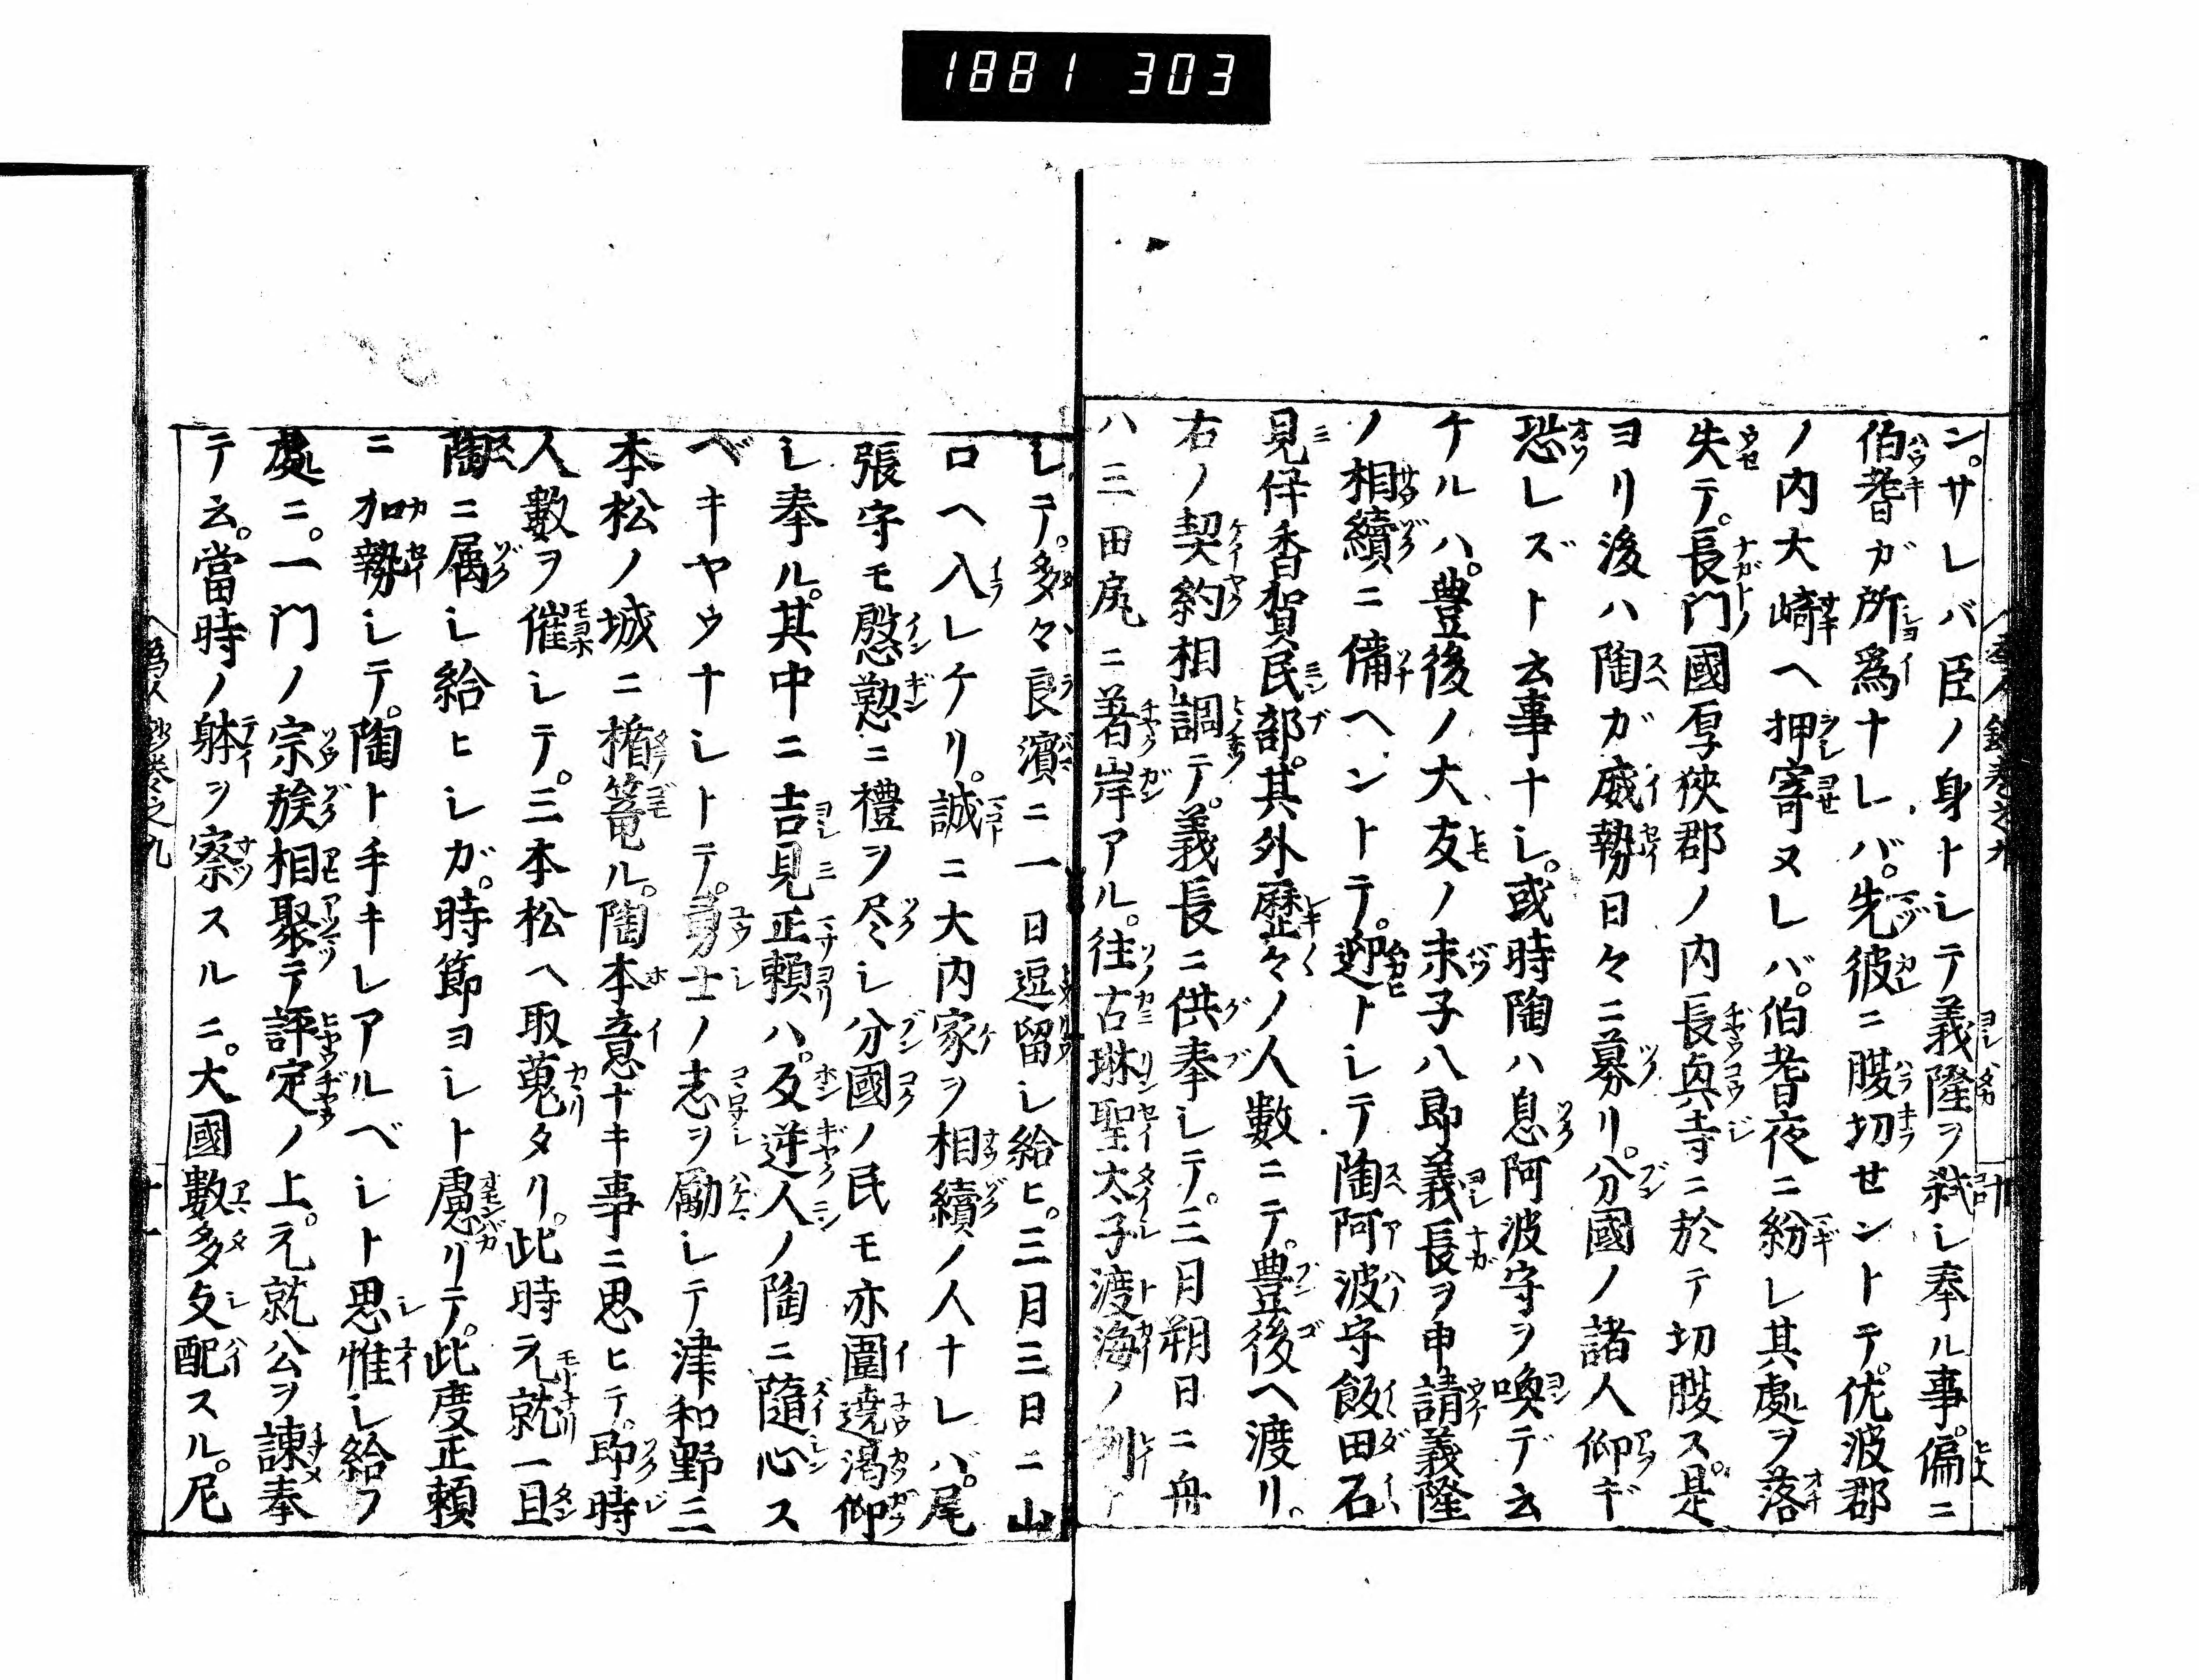 1881 303
ン。サレバ臣ノ身トシテ義隆ヲ弑シ奉ル事。偏ニ
伯耆ガ所爲ナレバ。先彼ニ腹切セントテ。佐波郡
ノ内大崎ヘ押寄ヌレバ。伯耆夜ニ紛レ其處ヲ落
失テ。長門國厚狹郡ノ内長興寺ニ於テ切腹ス。是
ヨリ後ハ陶ガ威勢日々ニ募リ。分國ノ諸人仰ギ
恐レズト云事ナシ。或時陶ハ息阿波守ヲ喚デ云
ケルハ。豊後ノ大友ノ末子八郎義長ヲ申請義隆
ノ相續ニ備ヘントテ。迎トシテ陶阿波守飯田石
見伴香賀民部。其外歴々ノ人數ニテ。豊後ヘ渡リ。
右ノ契約相調テ。義長ニ供奉シテ。三月朔日ニ舟
ハ三田尻ニ著岸アル。往古琳聖太子渡海ノ例ト
シテ。多々良濱ニ一日逗留シ給ヒ。三月三日ニ山
口ヘ入レケリ。誠ニ大内家ヲ相續ノ人ナレバ。尾
張守モ慇懃ニ禮ヲ尽シ分國ノ民モ亦圍遶渇仰
シ奉ル。其中ニ吉見正頼ハ。反逆人ノ陶ニ隨心ス
ベキヤウナシトテ。勇士ノ志ヲ勵シテ津和野三
本松ノ城ニ楯篭ル。陶本意ナキ事ニ思ヒテ。即時
人數ヲ催シテ。三本松ヘ取蒐タリ。此時元就一旦
陶ニ属シ給ヒシガ。時節ヨシト慮リテ。此度正頼
ニ加勢シテ。陶ト手キレアルベシト思惟シ給フ
處ニ。一門ノ宗族相聚テ評定ノ上。元就公ヲ諫奉
テ云。當時ノ躰ヲ察スルニ。大國數多支配スル。尼
巻之九
十一